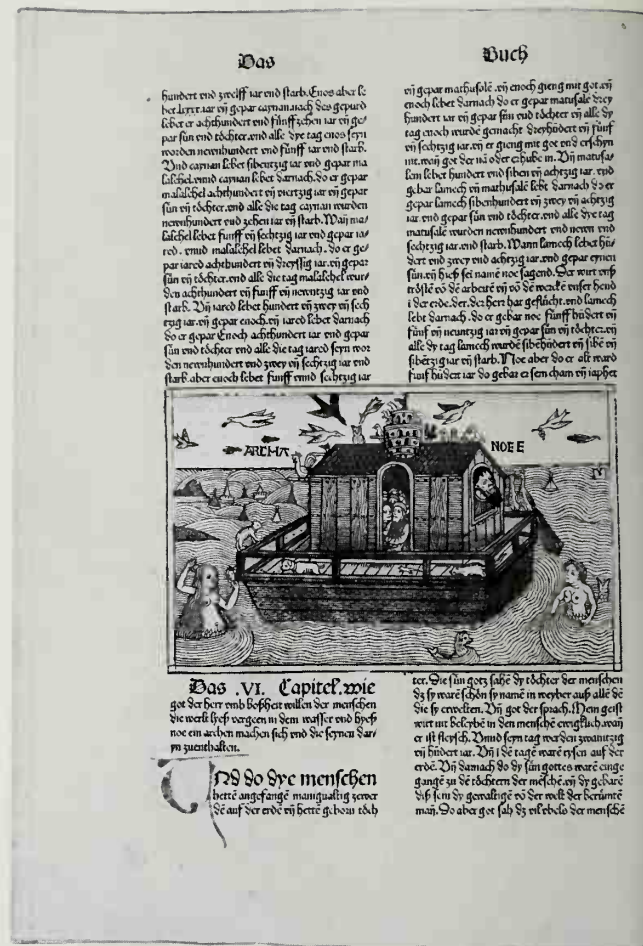 Das
Buch
hundert vnd zwelff iar vnd starb. Enos aber le
bet lxxxx. iar vn̄ gepar caynan. nach des gepurd
lebet er achthundert vnd fünffzehen iar vn̄ ge/
par sün vnd töchter. vnd alle dye tag enos seyn
worden newenhundert vnd fünff iar vnd starb.
Vnd caynan lebet sibentzig iar vnd gepar ma
lalehel. vnnd caynan lebet darnach. do er gepar
malalehel achthundert vn̄ viertzig iar vn̄ gepar
sün vn̄ töchter. vnd alle die tag caynan wurden
newenhundert vnd zehen iar vn̄ starb. Wañ ma/
lalehel lebet funff vn̄ sechtzig iar vnd gepar ia/
red. vnnd malalehel lebet darnach. do er ge/
par iared achthundert vn̄ dreyssig iar. vn̄ gepar
sün vn̄ töchter. vnd alle die tag malalehel wur/
den achthundert vn̄ funff vn̄ newentzig iar vnd
starb. Vn̄ iared lebet hundert vn̄ zwey vn̄ sech
tzig iar. vn̄ gepar enoch. vn̄ iared lebet darnach
do er gepar Enoch achthundert iar vnd gepar
sün vnd töchter vnd alle die tag iared seyn wor
den newenhundert vnd zwey vn̄ sechtzig iar vnd
starb. aber enoch lebet funff vnnd sechtzig iar
vn̄ gepar mathusalē. vn̄ enoch gieng mit got. vn̄
enoch lebet darnach do er gepar matusale drey
hundert iar vn̄ gepar sün vnd töchter vn̄ alle dy
tag enoch wurdē gemacht dreyhūdert vn̄ fünf
vn̄ sechtzig iar. vn̄ er gieng mit got vnd erschyn
nit. wañ got der nā oder erhube in. Vn̄ matusa/
lem lebet hundert vnd siben vn̄ achtzig iar. vnd
gebar lamech vn̄ mathusalē lebt darnach do er
gepar lamech sibenhundert vn̄ zwey vn̄ achtzig
iar. vnd gepar sün vnd töchter. vnd alle dye tag
matusalē wurden newenhundert vnd newen vnd
sechtzig iar. vnd starb. Wann lamech lebet hū/
dert vnd zwey vnd achtzig iar. vnd gepar eynen
sün. vn̄ hieß sei namē noe sagend. Der wirt vns
tröstē vō dē arbeitē vn̄ vō dē werckē vnser hend
i der erde. der. der herr hat geflucht. vnd lamech
lebt darnach. do er gebar noe fünff hūdert vn̄
fünf vn̄ neuntzig iar vn̄ gepar sün vn̄ töchter. vn̄
alle dy tag lamech wurdē sibēhūdert vn̄ sibē vn̄
sibētzig iar vn̄ starb. Noe aber do er alt ward
funf hūdert iar do gebar er sem cham vn̄ iaphet
ARCHA
NOE E
Das .VI. Capitel. wie
got der herr vmb boßheit willen der menschen
die welt lyeß vergeen in dem wasser vnd hyeß
noe ein archen machen sich vnd die seynen dar/
yn zuenthalten.
Vnd do dye menschen
hettē angefangē manigualtig zewer
dē auf der erde vn̄ hettē geborn töch
ter. Die sün gotz sahē dy töchter der menschen
dz sy warē schön sy namē in weyber auß allē dē
die sy erwelten. Vn̄ got der sprach. Mein geist
wirt nit beleybē in den menschē ewigklich. wañ
er ist fleysch. Vnnd seyn tag werden zwaintzig
vn̄ hūdert iar. Vn̄ i dē tagē warē rysen auf der
erdē. Vn̄ darnach do dy sün gottes warē einge
gangē zu dē töchtern der mēschē. vn̄ dy gebarē
diß sein dy gewaltigē vō der welt der berūmtē
mañ. Do aber got sah dz vil vbels der menschē